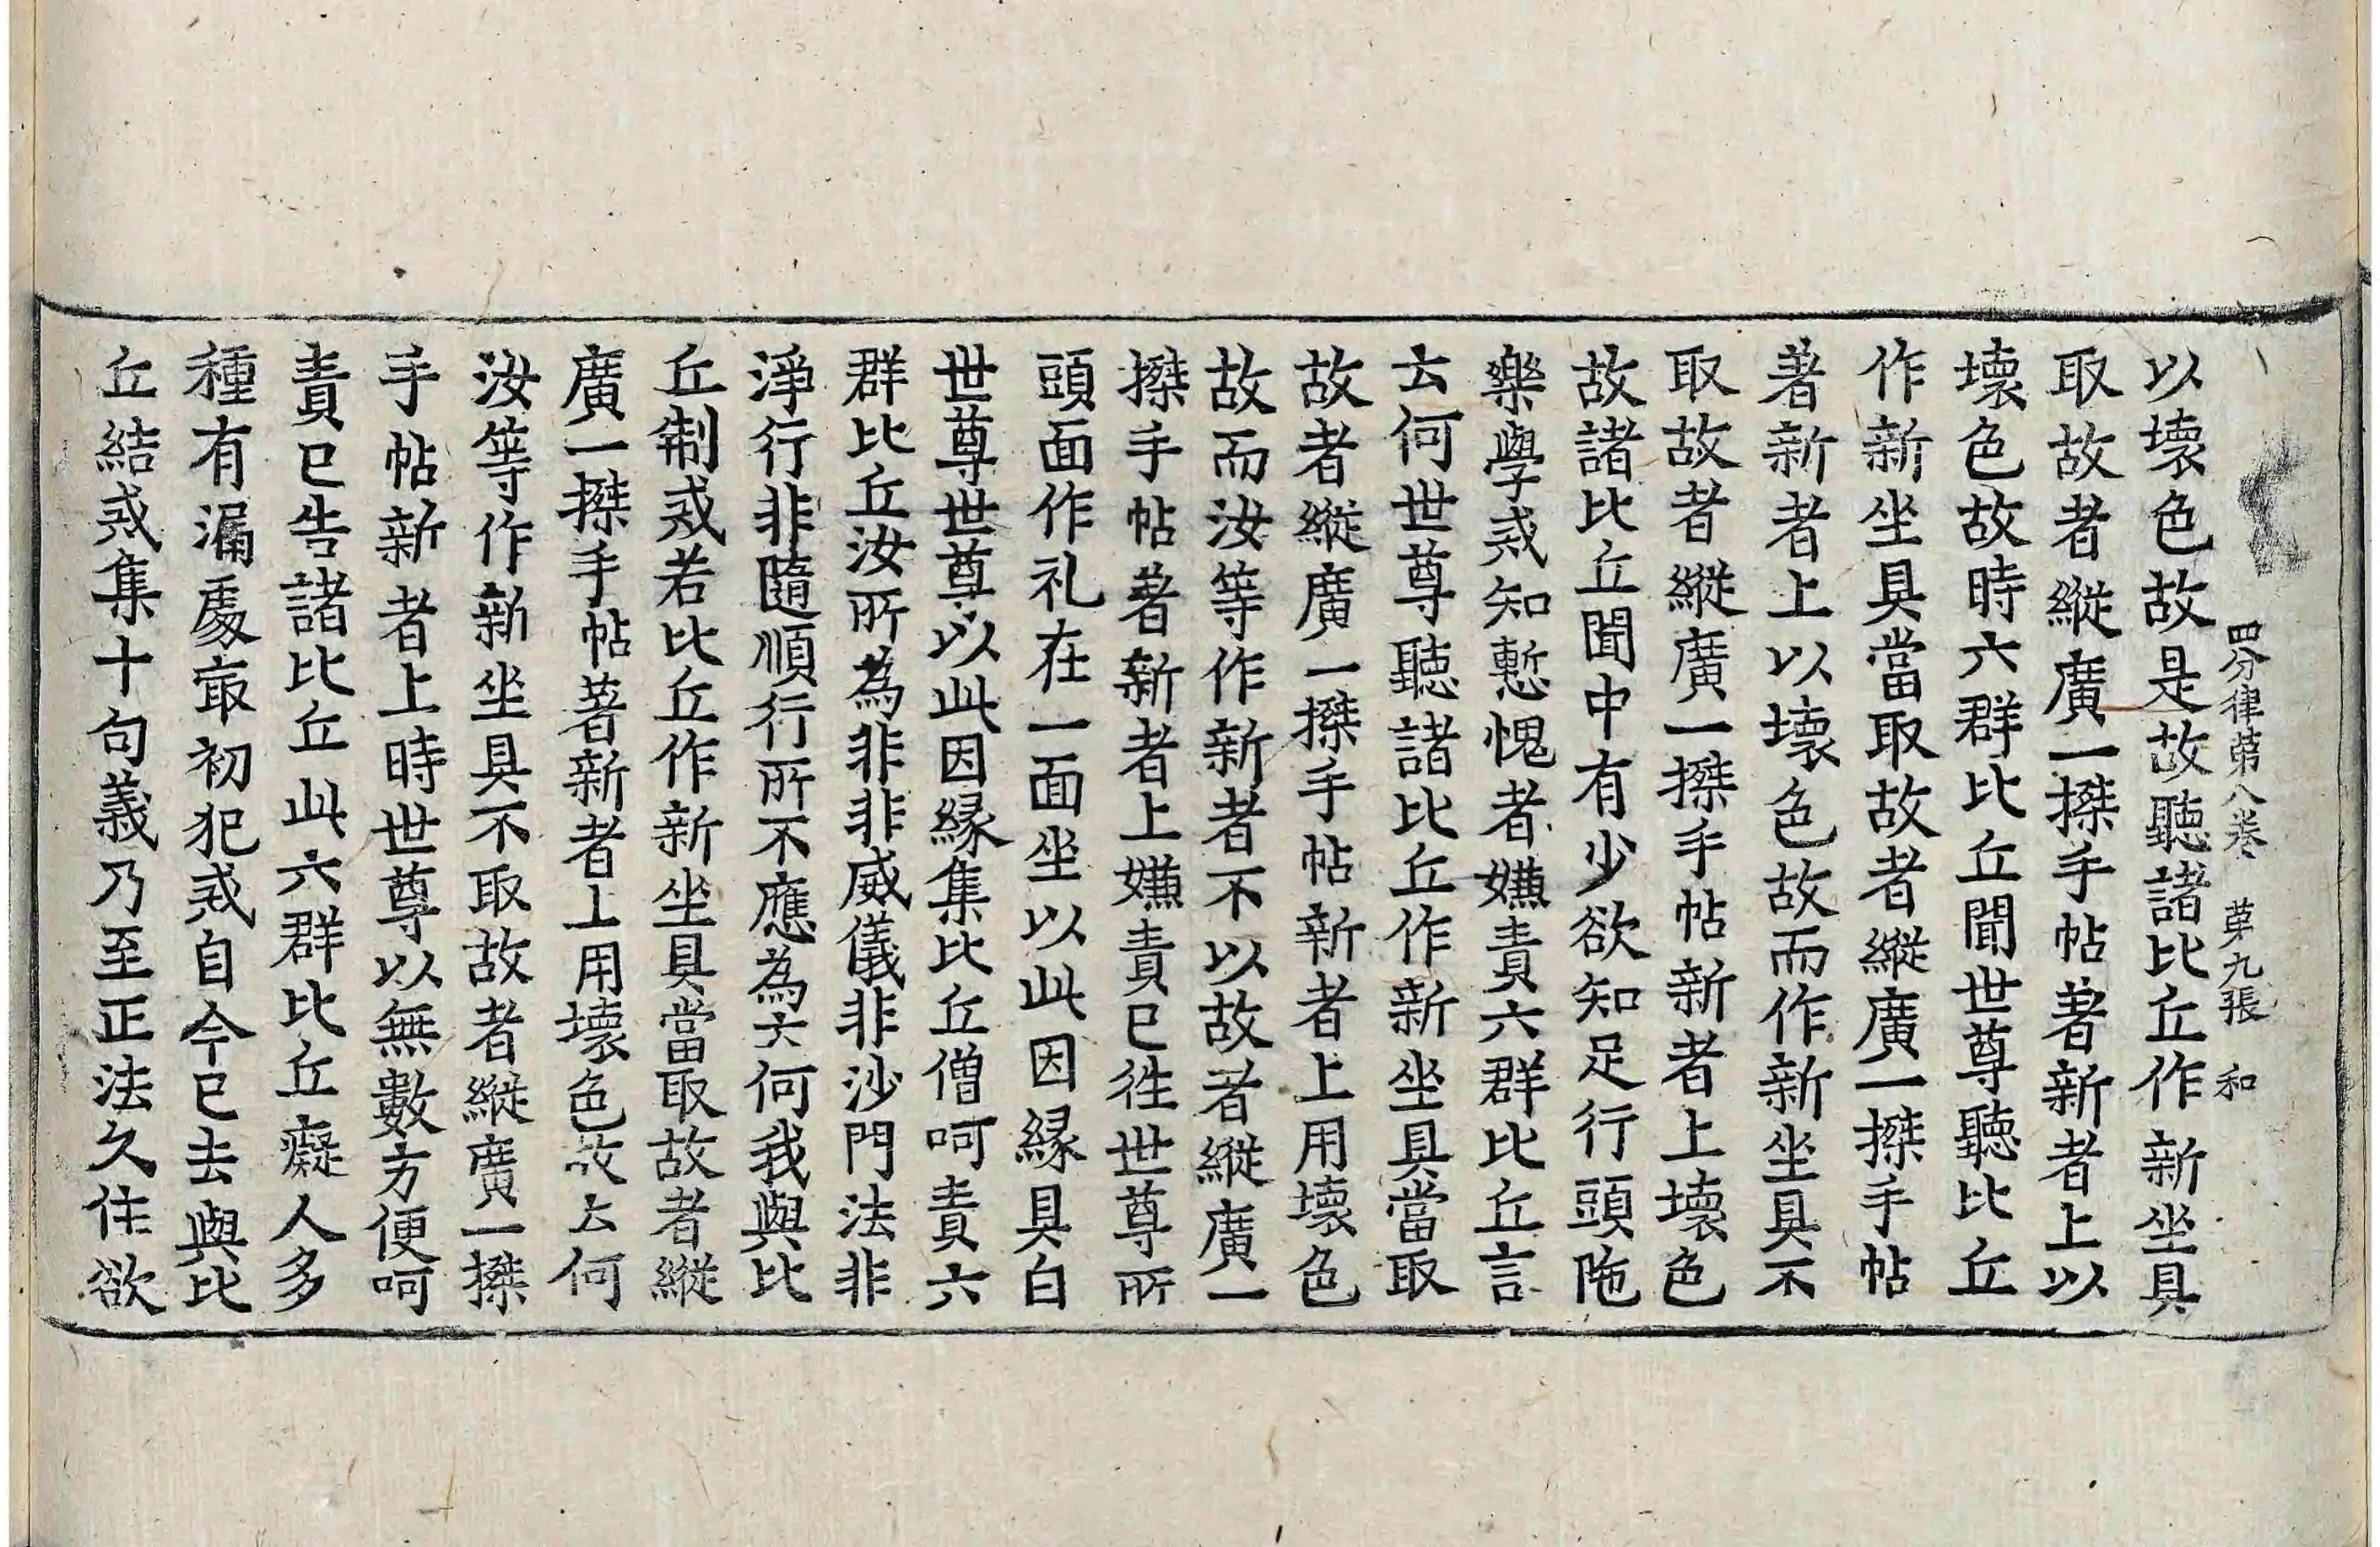 四分律第八卷 第九張 和
以壞色故是故聽諸比丘作新坐具
取故者縱廣一搩手帖著新者上以
壞色故時六群比丘聞世尊聽比丘
作新坐具當取故者縱廣一搩手帖
著新者上以壞色故而作新坐具不
取故者縱廣一搩手帖新者上壞色
故諸比丘聞中有少欲知足行頭陁
樂學戒知慙愧者嫌責六群比丘言
云何世尊聽諸比丘作新坐具當取
故者縱廣一搩手帖新者上用壞色
故而汝等作新者不以故者縱廣一
搩手帖著新者上嫌責已徃世尊所
頭面作礼在一面坐以此因緣具白
世尊世尊以此因緣集比丘僧呵責六
群比丘汝所為非非威儀非沙門法非
淨行非隨順行所不應為云何我與比
丘制戒若比丘作新坐具當取故者縱
廣一搩手帖著新者上用壞色故云何
汝等作新坐具不取故者縱廣一搩
手帖新者上時世尊以無數方便呵
責已告諸比丘此六群比丘癡人多
種有漏處㝡初犯戒自今已去與比
丘結戒集十句義乃至正法久住欲